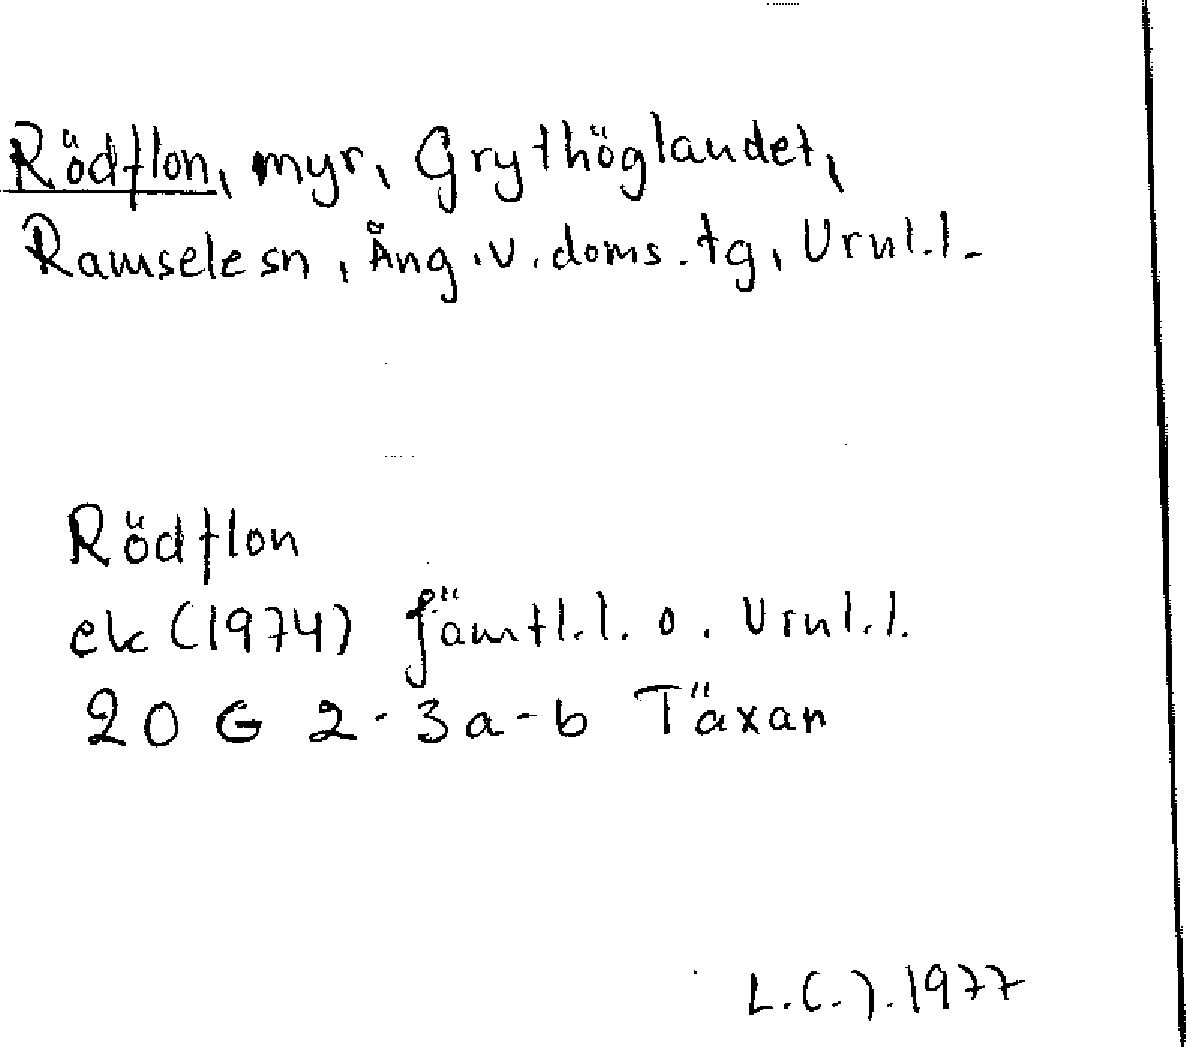 Rödflon, myr, Grythöglandet,
Ramsele sn, Ång.v.doms.tg, Vrnl.l.
Rödflon
ek (1974) Jämtl.l. o. Vrnl.l.
20 G 2-3a-b Täxan
L.C.J. 1977